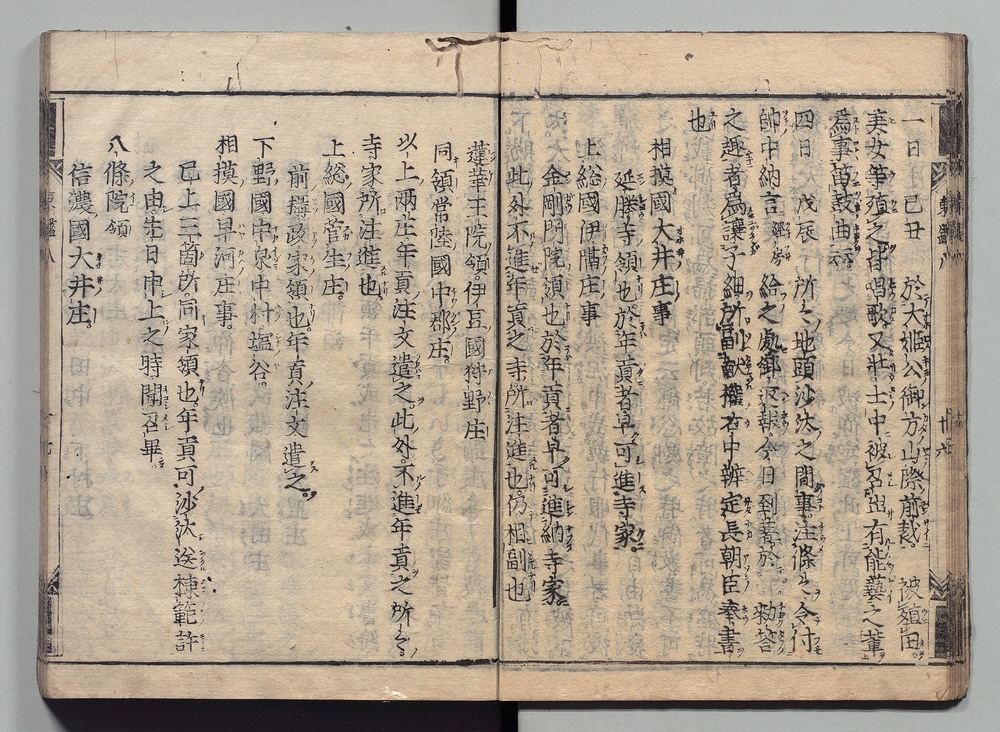 一日己丑　於大姫公御方山際前栽被殖田
美女等殖之皆唱歌又壮士中被召出有能藝之輩
為事笛鼓曲云云
四日戊辰　所々地頭沙汰之間事注條々令付
帥中納言經房給之處御返報今日到著於勅荅
之趣者為讓子細所副獻權右中辨定長朝臣奉書
也
相摸國大井庄事
延勝寺領也於年貢者早可進寺家
上総國伊隅庄事
金剛門院領也於年貢者早可進納寺家
此外不進年貢之寺所注進也仍相副也
蓮華王院領伊豆國狩野庄
同領常陸國中郡庄
以上兩庄年貢注文遣之此外不進年貢之所々
寺家所注進也
上総國菅生庄
前攝政家領也年貢注文遣之
下野國中泉中村塩谷
相摸國早河庄事
已上三箇所同家領也年貢可沙汰送棟範許
之由先日申上之時聞召畢
八條院領
信濃國大井庄
東鑑八